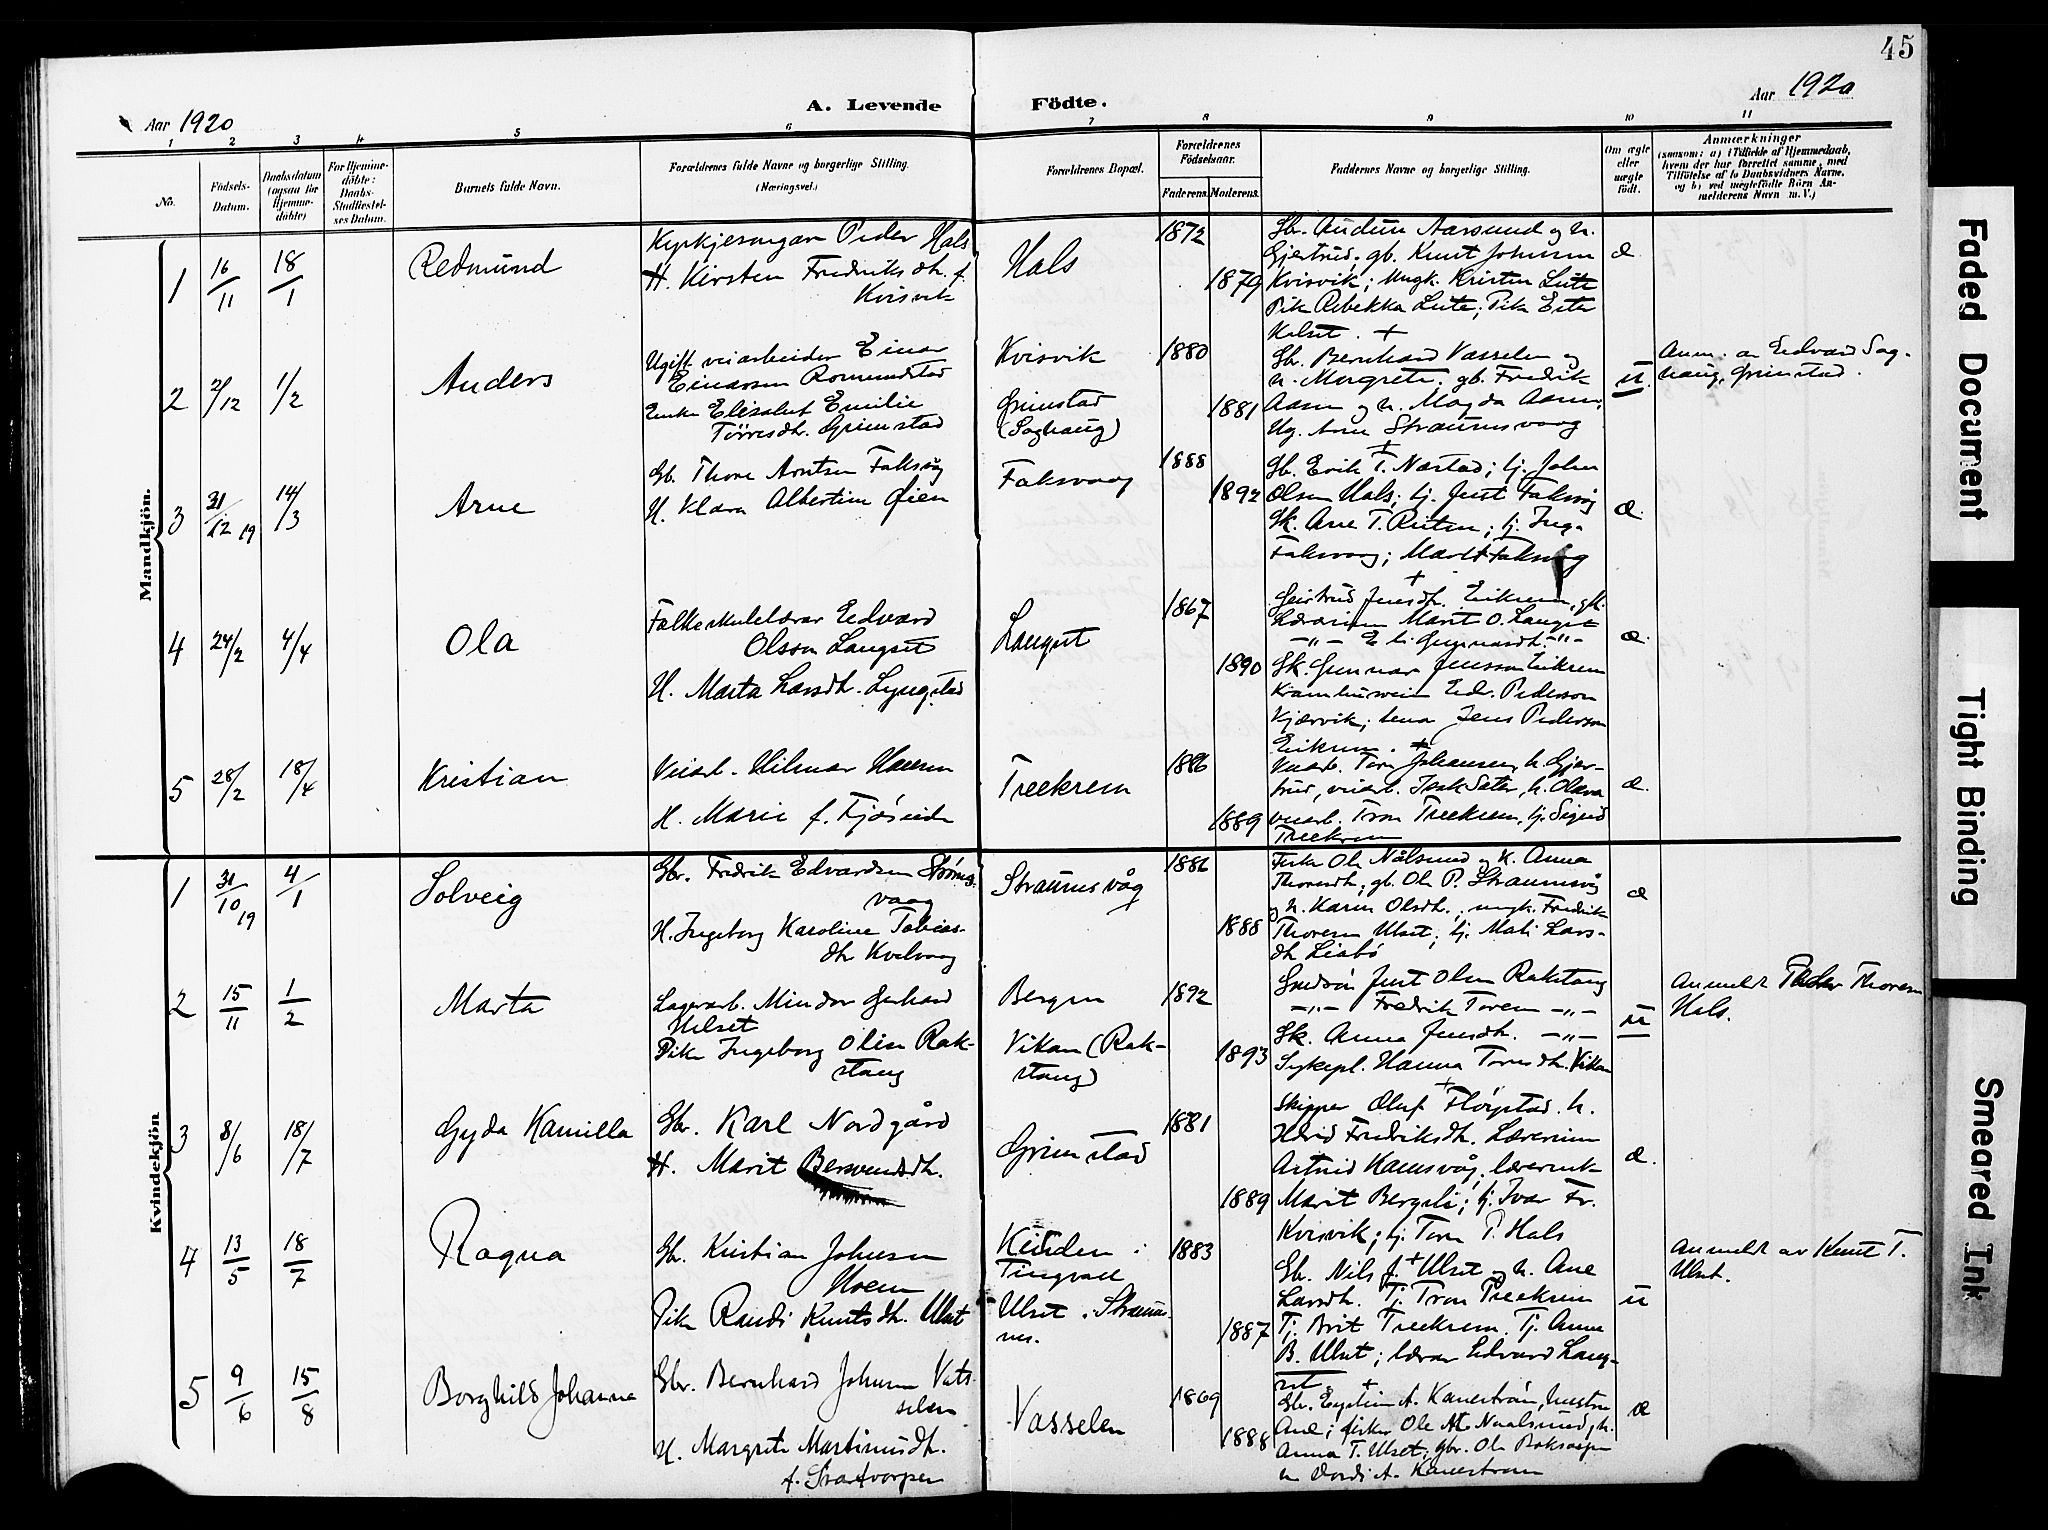 45
Aar 1920
A. Levende Födte.
Aar 1920
1 2 3 4 5 6 7 8 9 10 11
No.
Födsels-Datum.
Daabsdatum (ogsaa for Hjemme-döbte)
For Hjemme-döbte: Daabs-Stadfæstel-ses Datum.
Barnets fulde Navn.
Forældrenes fulde Navne og borgerlige Stilling. (Næringsvei.)
Forældrenes Bopæl.
Forældrenes Födselsaar.
Faderens. Moderens.
Faddernes Navne og borgerlige Stilling.
Om ægte eller uægte födt.
Anmærkninger
(saasom: a) i Tilfælde af Hjemmedaab, hvem der har forrettet samme, med Tilföielse af to Daabsvidners Navne, og b) ved uægtefödte Börn An-melderens Navn m. V.)
Mandkjön.
1 16/11 18/1 Redmund
Kyrkjesongar Peder Hals
H. Kirsten Fredriksdh. f. Kvisvik
Hals
1872
1879
Gb. Audun Aarsund og h.
Gjertrud; gb. Knut Johnsen
Kvisvik; Ungk. Kristen Lute
Pik. Rebekka Lute; Pik. Ester
Halset. +
æ.
2 2/12 1/2 Anders
Ugift veiarbeider Einar
Einarsen Romundstad
Enke Elisabet Emilie
Tørresdh. Grimstad
Kvisvik
Grimstad
(Saghaug)
1880
1881
Gb. Bernhard Vasselen og
h. Margrete; gb. Fredrik
Aasen og h. Magda Aasen;
Ug. Arne Straumsvaag
+
u.
Anm. av Edvard Sag-
haug, Grimstad.
3 31/12 19 14/3 Arne
Gb. Thore Arntsen Faksvåg
H. Klara Albertine Øien
Faksvaag
1888
1892
Gb. Erik T. Næstad; tj. John
Olsen Hals; tj. Just Faksvåg
Gk. Ane T. Reiten; tj. Inga
Faksvaag; Marit Faksvåg
+
æ.
4 24/2 4/4 Ola
Folkeskulelærar Edvard
Olsson Langset
H. Marta Larsdh. Lyngstad
Langset
1867
1890
Geirtrud Jensdh. Eikrem, gk.
Lærarinne Marit O. Langset
–„– E. L. Gunnarsdh. –„–
Gk. Gunnar Jensson Eikrem
Kramhussvein Edv. Pederson
Kjærvik; tena Jens Pederson
Eikrem. +
æ.
5 28/2 18/4 Kristian
Veiarb. Hilmar Hansen
H. Marie f. Fjøseide
Treekrem
1886
1889
Veiarb. Tore Johansen, h. Gjer-
trud, veiarb. Isak Sæter, h. Olava
veiarb. Tron Treekrem, tj. Sigrid
Treekrem
æ.
Kvindekjön
1 31/10 19 4/1 Solveig
Gbr. Fredrik Edvardsen Strøms-
vaag
H. Ingeborg Karoline Tobias-
dh Kvalvaag
Straumsvåg
1886
1888
Fisk. Ole Nålsund og K. Anna
Thoresdh; gb. Ole P. Straumsvåg
og h. Karen Olsdh.; ungk. Fredrik
Thoresen Ulset; tj. Mali Lars-
dh Liabø
æ
2 15/11 1/2 Marta
Lagerarb. Mindor Gerhard
Helset
Pike Ingeborg Oline Rak-
stang
Bergen
Vikan (Rak-
stang)
1892
1893
Gardsön Just Olsen Rakstang
–„– Fredrik Toresen –„–
Gk. Anna Jensdh. –„–
Sykepl. Hanna Toresdh. Vikan
+
u
Anmeldt Peder Thoresen
Hals.
3 8/6 18/7 Gyda Kamilla
Gbr. Karl Nordgård
H. Marit Berntsdh.
Grimstad
1881
1889
Skipper Oluf Fløystad. h.
Hdrid Fredriksdh. Lærerinne
Astrid Hamsvåg; lærerinne
Marit Bergsli; tj. Ivar Fr.
Kvisvik; tj. Tore P. Hals
+
æ.
4 13/5 18/7 Ragna
Gbr. Kristian Johnsen
Moen
Pike Randi Knutsdh. Ulset
Keisden i
Tingvoll
Ulset. Straums-
nes.
1883
1887
Gbr. Nils J. Ulset og h. Ane
Larsdh. Tj. Tron Treekrem
Tj. Brit Treekrem. Tj. Anne
B. Ulset; lærar Edvard Lang-
set +
u
Anmeldt av Knut T.
Ulset.
5 9/6 15/8 Borghild Johanna
Gbr. Bernhard Johnsen Vats-
selen
H. Margrete Martinusdh.
f. Svartvarpen
Vasselen
1869
1888
Gbr. Eystein A. Kanestrøm, hustru
Ane; fisker Ole M. Naalsund, h.
Anna T. Ulset; gbr. Ole Boksaspen
en Dordi A. Kanestrøm
æ
Faded Document
Tight Binding
Smeared Ink